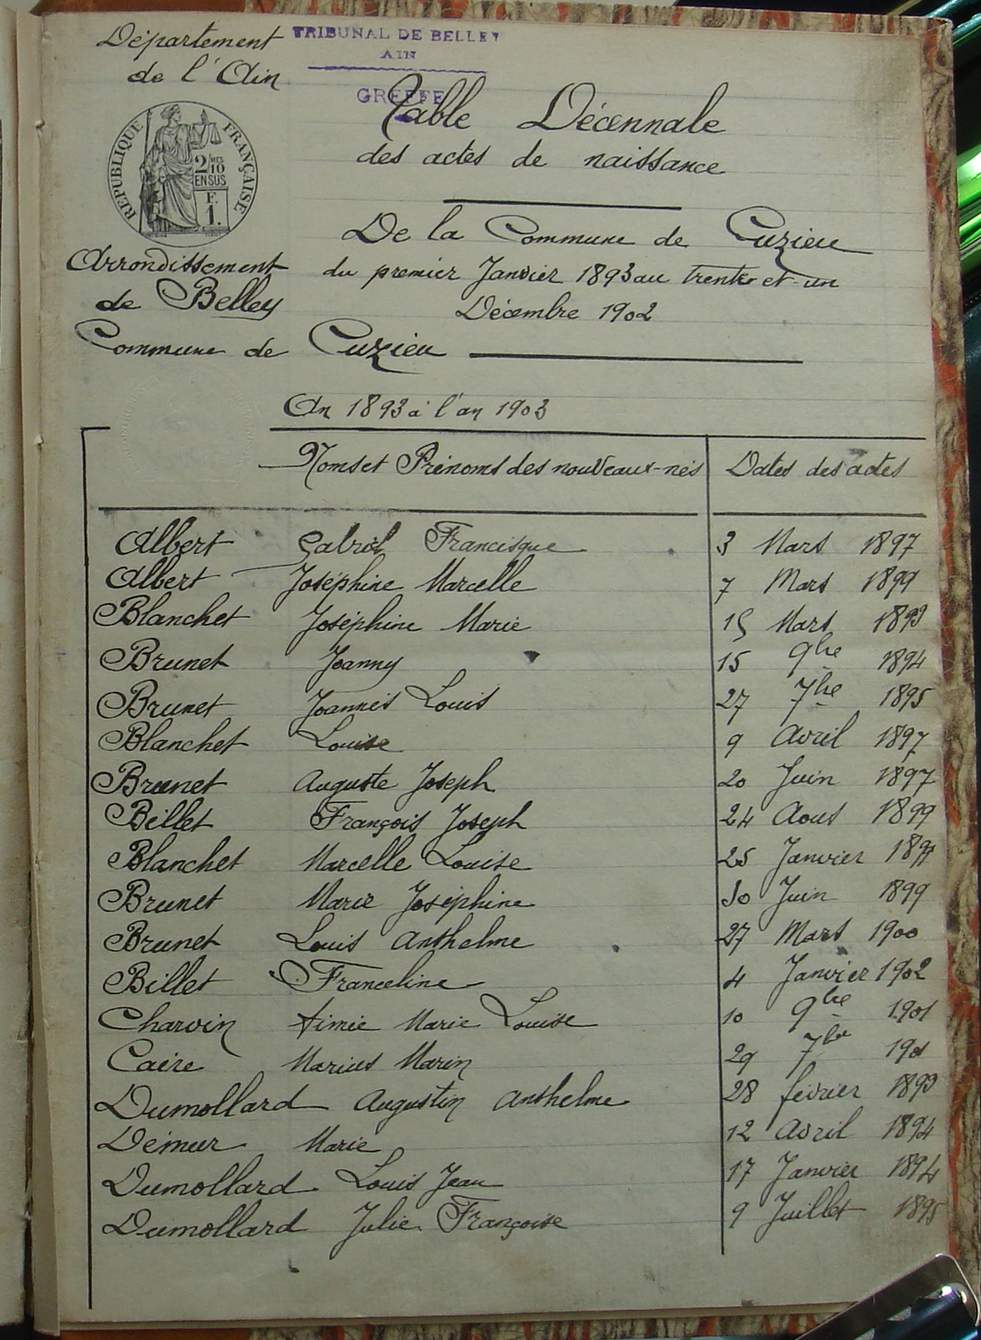 Département
de l'Ain
TRIBUNAL DE BELLEY
AIN
GREFFE
RÉPUBLIQUE FRANÇAISE
2/10
EN SUS
F.
1.
Table Décennale
des actes de naissance
De la Commune de Cuzieu
du premier Janvier 1893 au trente et un
Décembre 1902
Arrondissement
de Belley
Commune de Cuzieu
An 1893 à l'an 1903
Noms et Prénoms des nouveaux-nés Dates des actes
Albert Gabriel Francisque 3 Mars 1897
Albert Joséphine Marcelle 7 Mars 1899
Blanchet Joséphine Marie 15 Mars 1893
Brunet Joanny 15 9bre 1894
Brunet Joannès Louis 27 7bre 1895
Blanchet Louise 9 Avril 1897
Brunet Auguste Joseph 20 Juin 1897
Billet François Joseph 24 Aout 1899
Blanchet Marcelle Louise 25 Janvier
Brunet Marie Joséphine 30 Juin 1899
Brunet Louis Anthelme 27 Mars 1900
Billet Franceline 4 Janvier 1902
Charvin Aimée Marie Louise 10 9bre 1901
Caire Marius Marin 29 7bre
Dumollard Augustin Anthelme 28 février 1893
Démeur Marie 12 Avril 1894
Dumollard Louis Jean 17 Janvier 1894
Dumollard Julie Françoise 9 Juillet 1895